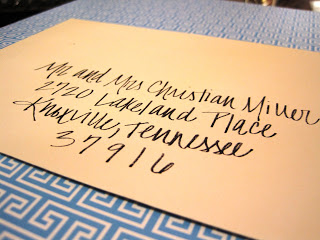 Mr. and Mrs Christian Miller
2720 Lakeland Place
Knoxville, Tennessee
37916